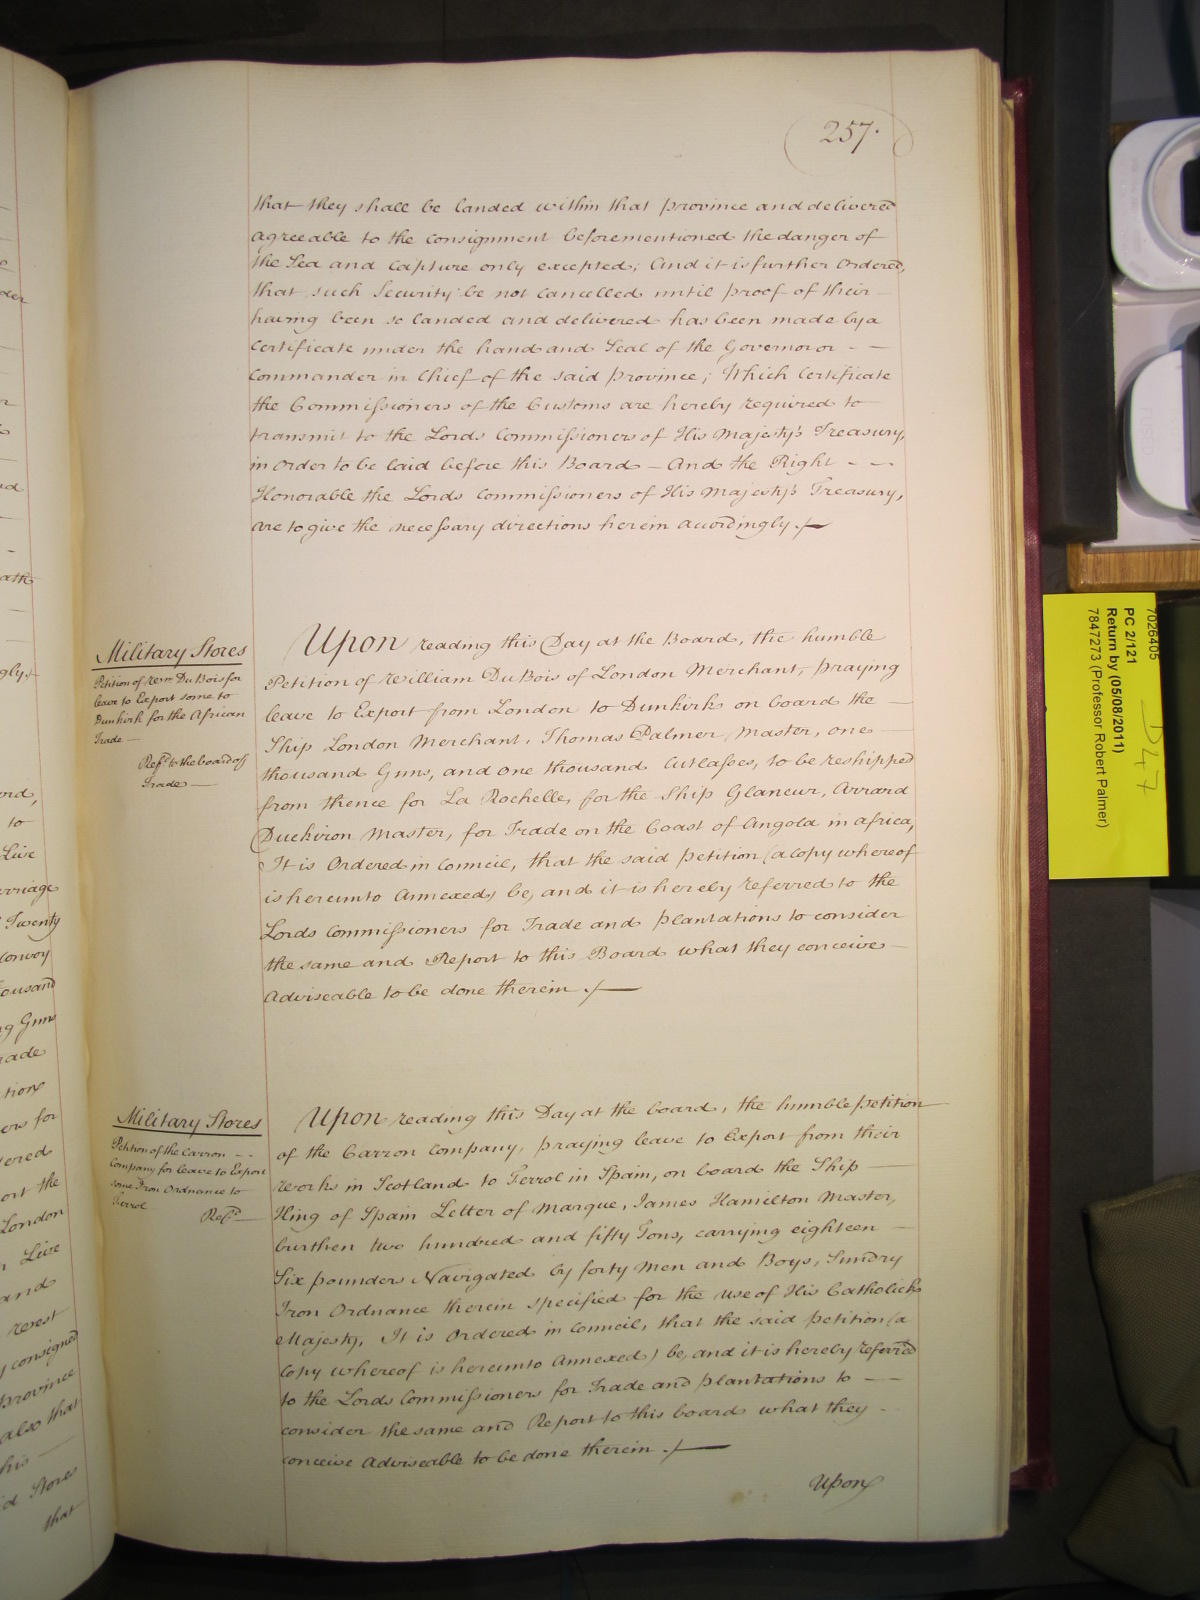 257.
that they shall be landed within that province and delivered
agreeable to the consignment beforementioned the danger of
the Sea and Capture only excepted; And it is further Ordered,
that such Security be not cancelled until proof of their
having been so landed and delivered has been made by a
Certificate under the hand and Seal of the Governor or
Commander in Chief of the said province; Which Certificate
the Commissioners of the Customs are hereby required to
transmit to the Lords Commissioners of His Majesty's Treasury,
in Order to be laid before this Board - And the Right
Honorable the Lords Commissioners of His Majesty's Treasury,
are to give the necessary directions herein accordingly.
Military Stores
Petition of Wm. Du Bois for
leave to Export some to
Dunkirk for the African
Trade
Refd. to the board of
Trade
Upon reading this Day at the Board, the humble
Petition of William Du Bois of London Merchant, praying
leave to Export from London to Dunkirk on board the
Ship London Merchant, Thomas Palmer, Master, one
thousand Guns, and one thousand Cutlasses, to be reshipped
from thence for La Rochelle, for the Ship Glaneur,
Master, for Trade on the Coast of Angola in africa,
It is Ordered in Council, that the said petition (a Copy whereof
is hereunto Annexed) be, and it is hereby referred to the
Lords Commissioners for Trade and plantations to consider
the same and Report to this Board what they conceive
Adviseable to be done therein.
Military Stores
Petition of the Carron
Company for leave to Export
some Iron Ordnance to
Ferrol
Refd.
Upon reading this Day at the board, the humble petition
of the Carron Company, praying leave to Export from their
Works in Scotland to Ferrol in Spain, on board the Ship
King of Spain Letter of Marque, James Hamilton Master,
burthen two hundred and fifty Tons, carrying eighteen
Six pounders Navigated by forty Men and Boys, Sundry
Iron Ordnance therein specified for the use of His Catholick
Majesty, It is Ordered in Council, that the said petition (a
Copy whereof is hereunto Annexed) be, and it is hereby referred
to the Lords Commissioners for Trade and plantations to
consider the same and Report to this board what they
conceive Adviseable to be done therein.
Upon
7026405
PC 2/121
Return by (05/08/2011)
7847273 (Professor Robert Palmer)
D47
der
ath
to
Live
Twenty
Convoy
Guns
ers for
ort the
London
Live
and
consigned
province
also that
Stores
that